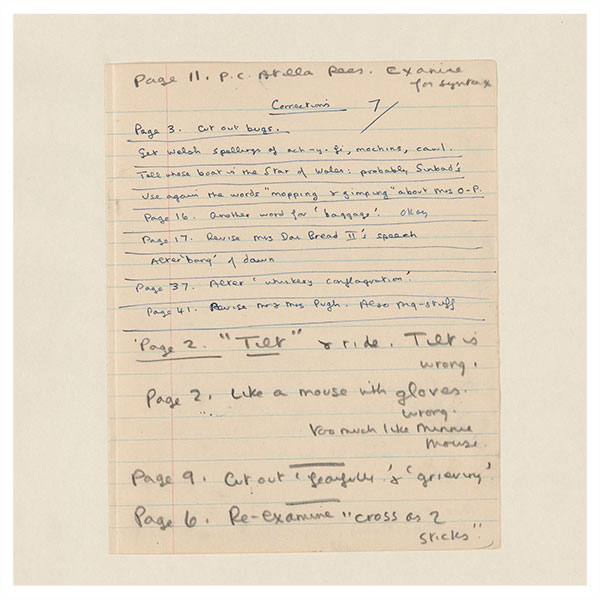 Page 11. P.C. Atilla Rees. Examine
for syntax
Corrections 7/
Page 3. Cut out bugs.
Get Welsh spellings of ach-y-fi, mochins, cawl.
Tell whose boat is the Star of Wales: probably Sinbad's
Use again the words "mopping & gimping" about Mrs O-P.
Page 16. Another word for 'baggage'. Okay
Page 17. Revise Mrs Dai Bread II's speech
Alter 'bang' of dawn
Page 37. Alter 'whiskery conflagration'.
Page 41. Revise Mr & Mrs Pugh. Also
Page 2. "Tilt" & ride. Tilt is
wrong.
Page 2. Like a mouse with gloves.
wrong.
too much like Minnie
Mouse.
Page 9. Cut out 'fearfully' & 'grieving'
Page 6. Re-Examine "cross as 2
sticks".